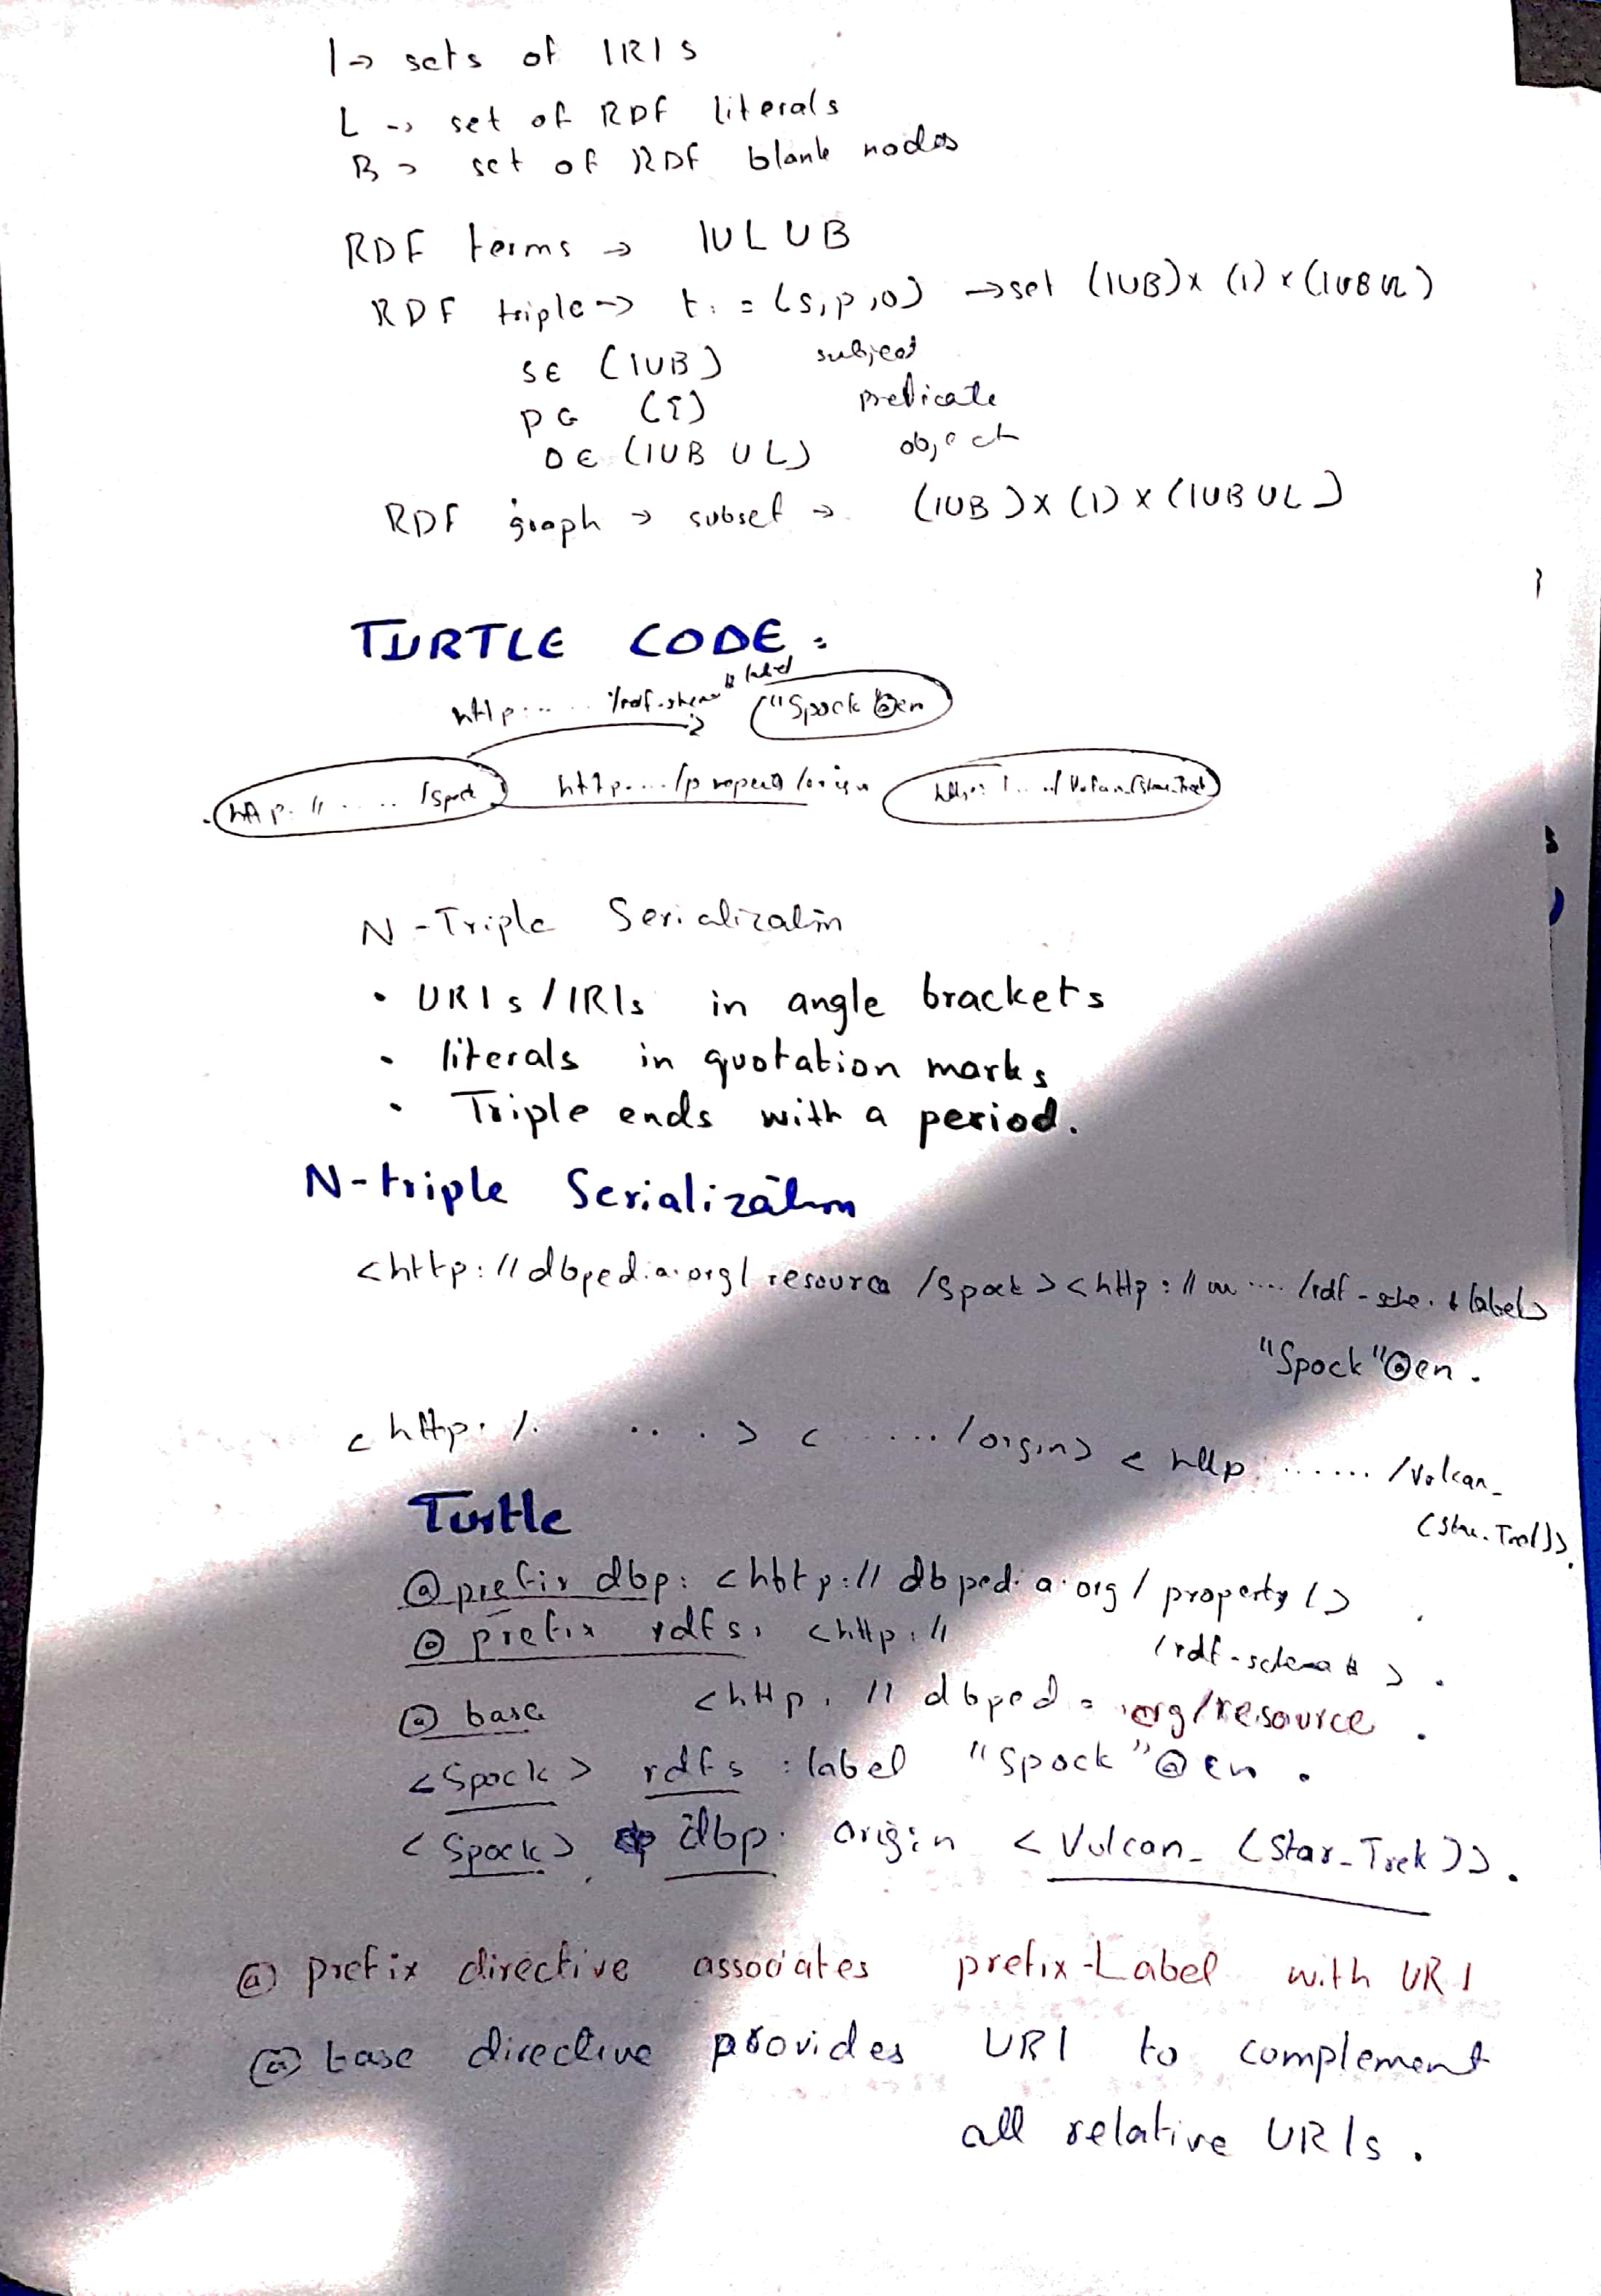 I → sets of IRIs
L → set of RDF literals
B → set of RDF blank nodes
RDF terms → IULUB
RDF triple → t: = (s,p,o) → set (IUB)x (I) x (IUBUL)
SE (IUB) subject
PE (I) predicate
OE (IUB UL) object
RDF graph → subset → (IUB)x (I) x (IUBUL)
TURTLE CODE :
http:.... /rdf-schema# label "Spock"@en
http://..... /Spock http..../property/origin http:/.../Vulcan_(Star_Trek)
N-Triple Serialization
• URIs/IRIs in angle brackets
• literals in quotation marks
• Triple ends with a period.
N-triple Serialization
<http://dbpedia.org/resource/Spock><http://ww..../rdf-sche.#label>
"Spock"@en.
<http:/. ....> < ..../origin> <http ....../Vulcan_
(Star_Trek)>.
Turtle
@prefix dbp: <http://dbpedia.org/property/> .
@prefix rdfs: <http:// /rdf-schema#> .
@base <http://dbpedia.org/resource .
<Spock> rdfs:label "Spock"@en .
<Spock> dbp: origin <Vulcan_(Star_Trek)>.
@prefix directive associates prefix-Label with URI
@base directive provides URI to complement
all relative URIs.